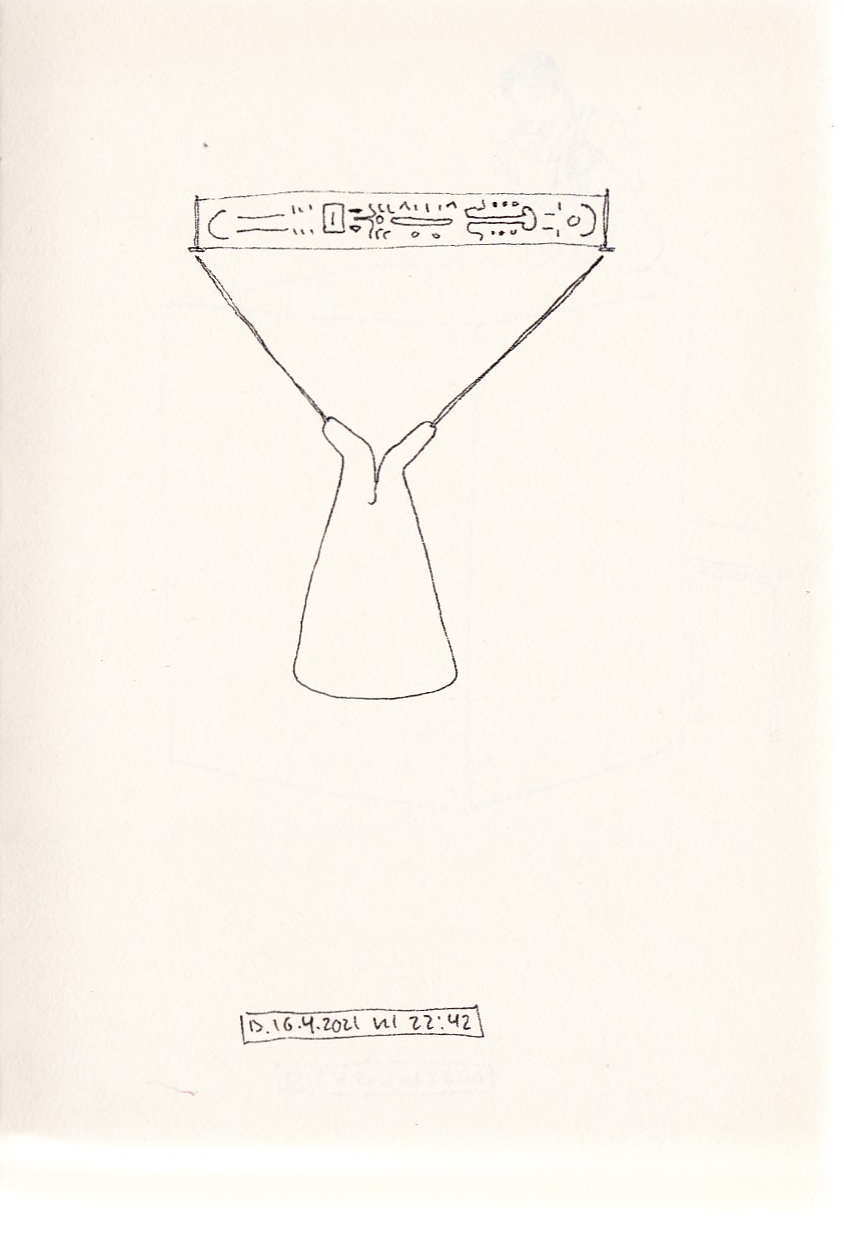 D. 16.4.2021 kl 22:42